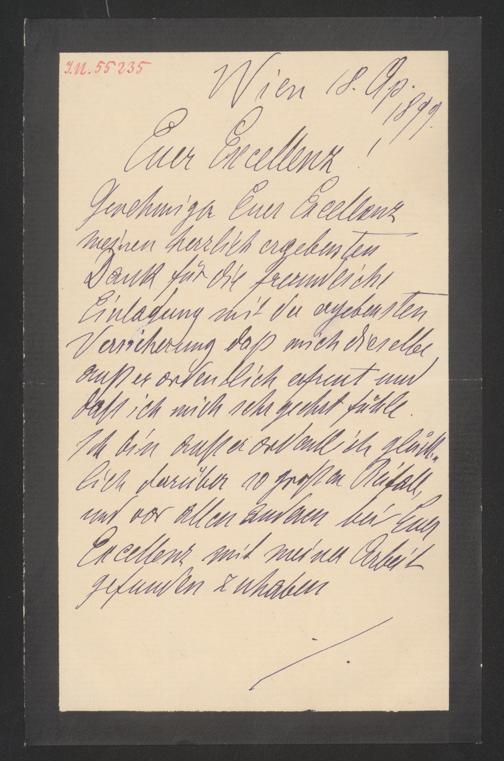 I.N. 55235
Wien 18. Ap.
1899.
Euer Excellenz!
Genehmigen Euer Excellenz
meinen herzlich ergebensten
Dank für die freundliche
Einladung mit der ergebensten
Versicherung daß mich dieselbe
außerordentlich erfreut und
daß ich mich sehr geehrt fühle.
Ich bin außerordentlich glück-
lich darüber so großen Beifall,
und vor allen anderen bei Euer
Excellenz mit meiner Arbeit
gefunden zu haben